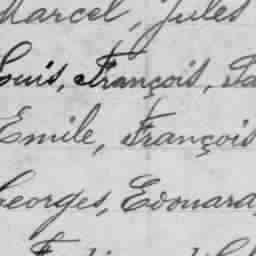 Marcel, Jules
Louis, François,
Emile, François
Georges, Edouard,